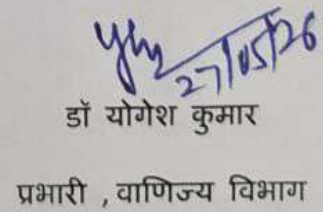 27/05/26
डॉ योगेश कुमार
प्रभारी , वाणिज्य विभाग